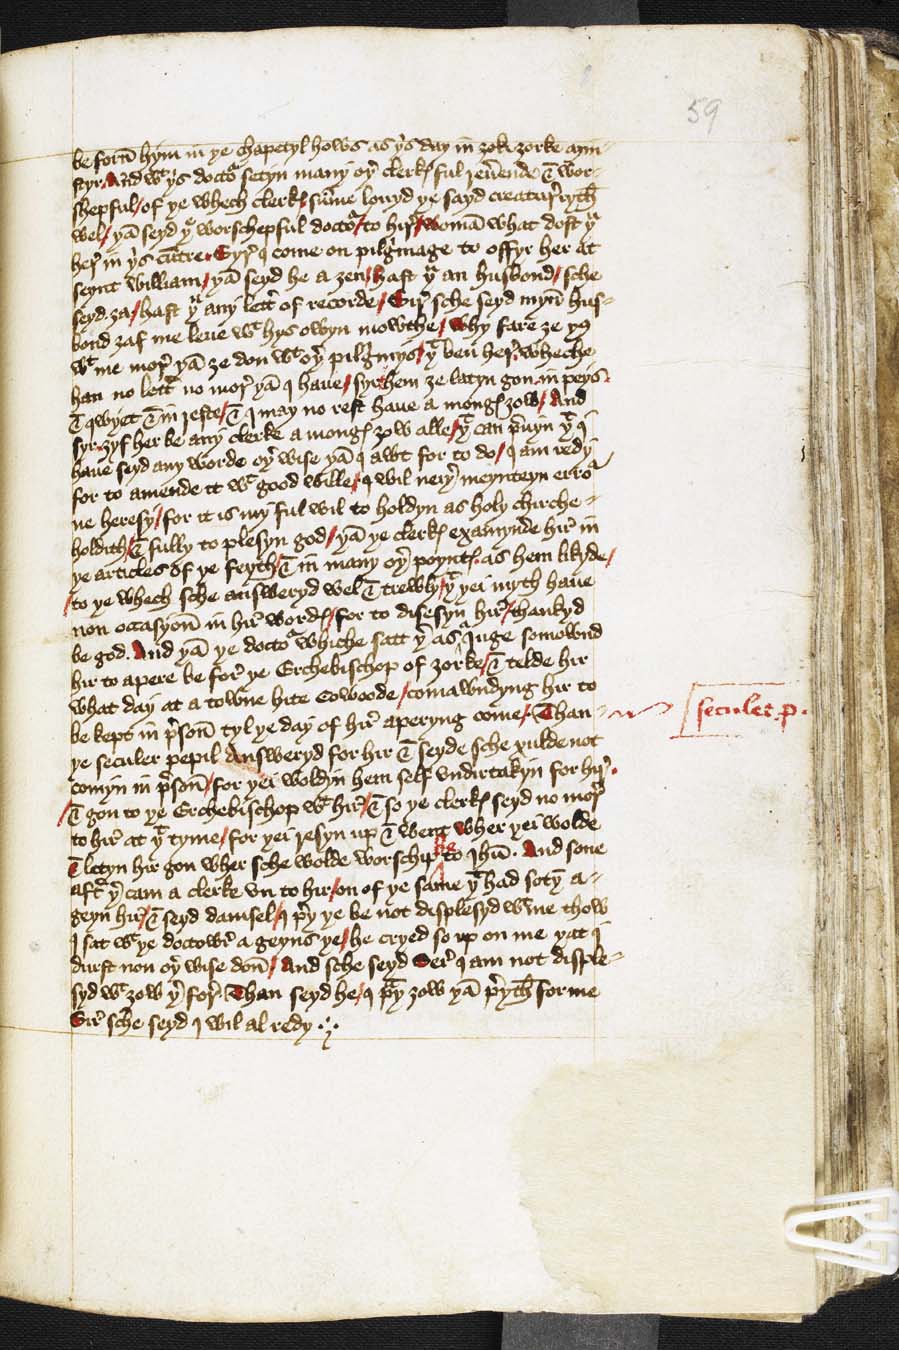 59
be forn̄ hym in ye chapetyl hows as yis day in ȝork ȝorke myn-
styr / And wt yis doctor setyn many oyr clerkys ful reuerende & wor-
shepful / of ye whech clerkys sūme louyd ye sayd creatur̄ rygth
wel / yā seyd yt worschepful doctor / to hir̄ / womā what dost yu
her̄ in yis cūtre. Syr̄ I come on pilgrimage to offyr her at
seynt william / yā seyd he a ȝen / hast yu an husbond / sche
seyd ȝa / hast yu any lettr̄ of recorde / Sir̄ sche seyd myn̄ hus-
bond ȝaf me leue wt hys owyn mowthe / why fare ȝe yus
wt me mor̄ yā ȝe don wt oyr pilgrimys / yt ben̄ her̄. wheche
han no lettr̄ no mor̄ yā I haue / syr / hem ȝe latyn gon in peys.
& qwyet & in reste / & I may no rest haue a mongys ȝow / And
syr. ȝyf her be any clerke a mongys ȝow alle / yt can preuyn yt I
haue seyd any worde oyr wise yā I awt for to do / I am redy
for to amende it wt good wille / I wil neyr meynteyn error
ne heresy / for it is my ful wil to holdyn as holy chirche -
holdith / & fully to plesyn god / yā ye clerkys examynde hir̄ in
ye articles of ye feyth / & in many oyr poyntys as hem likyde /
/ to ye whech sche answeryd wel & trewly / yt yei myth haue
non occasyon̄ in hir̄ wordys / for to disesyn hir̄ / thankyd
be god. And yā ye doctor whiche satt yr as a Iuge somownd
hir to apere be for̄ ye Erchebischop of ȝorke / & telde hir
what day at a towne hite Cowoode / comawndyng hir to
be kept in preson̄ tyl ye day of hir̄ aperyng come / . Than
seculer . p .
ye seculer pepil Answeryd for hir & seyde sche xulde not
comyn in preson̄ / for yei woldyn hem self vndirtakyn for hir̄.
/ & gon to ye Erchebischop wt hir̄ / & so ye clerkys seyd no mor̄
to hir̄ at yt tyme / for yei resyn up & went wher yei wolde
& letyn hir gon wher sche wolde worschip be to Ihū. And sone
aftr̄ yr cam a clerke vn to hir / on of ye same yt had sotyn a-
geyn hir̄ / & seyd damsel / I prey ye be not displesyd wt me thow
I sat wt ye doctowr̄ a geyns ye / he cryed so up on me yat I
durst non oyr wise don̄ / And sche seyd Ser̄ I am not disple-
syd wt ȝow yr for̄. Than seyd he / I prey ȝow yā preyth for me
Sir̄ sche seyd I wil al redy .